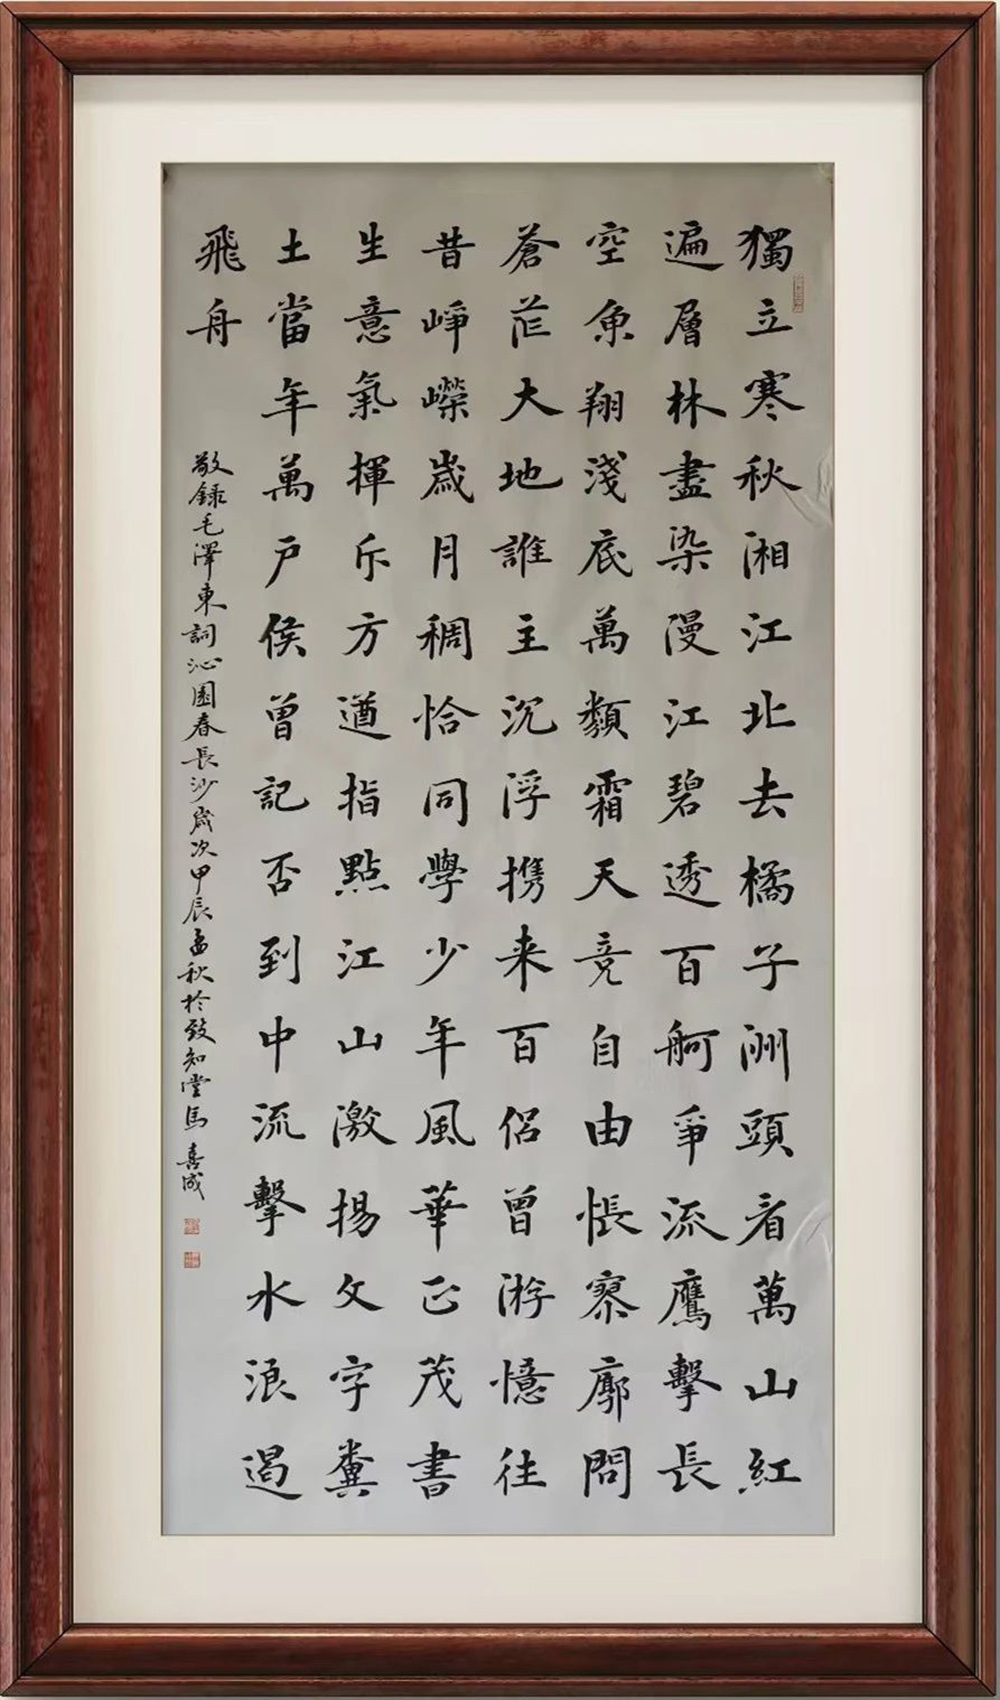 獨立寒秋湘江北去橘子洲頭看萬山紅
遍層林盡染漫江碧透百舸爭流鷹擊長
空魚翔淺底萬類霜天竞自由悵寥廓問
蒼茫大地誰主沉浮携来百侣曾游憶往
昔崢嶸歲月稠恰同學少年風華正茂書
生意氣揮斥方遒指點江山激揚文字糞
土當年萬户侯曾記否到中流擊水浪遏
飛舟
敬錄毛澤東詞沁園春長沙歲次甲辰孟秋於致知堂馬喜成